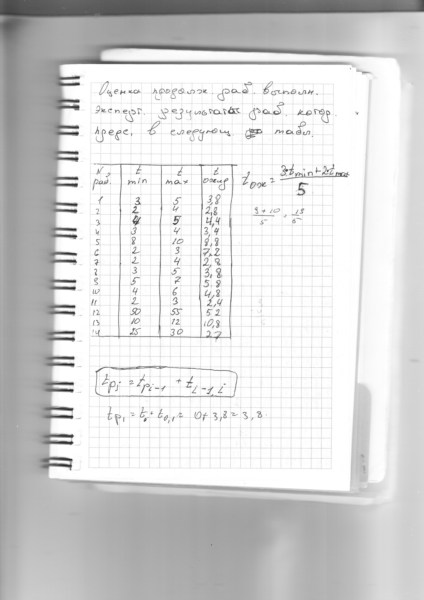 Оценка продолж. раб. выполн.
эксперт. результат раб. котор.
предс. в следующ. табл.
N раб. t min t max t ожид
t ож = 3t min + 2t max / 5
1 3 5 3,8
2 2 4 2,8
9+10 / 5 = 19 / 5
3 4 5 4,4
4 3 4 3,4
5 8 10 8,8
6 2 3 2,2
7 2 4 2,8
8 3 5 3,8
9 5 7 5,8
10 4 6 4,8
11 2 3 2,4
12 50 55 52
13 10 12 10,8
14 25 30 27
t pi = t pi-1 + t i-1,i
t p1 = t0 + t0,1 = 0+3,8 = 3,8